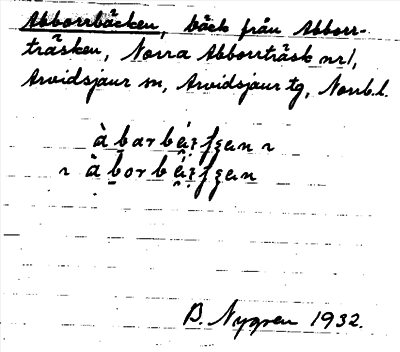 Abborrbäcken, bäck från Abborr-
träsken, Norra Abborrträsk nr 1,
Arvidsjaur sn, Arvidsjaur tg, Norrb. l.
B. Nygren 1932.